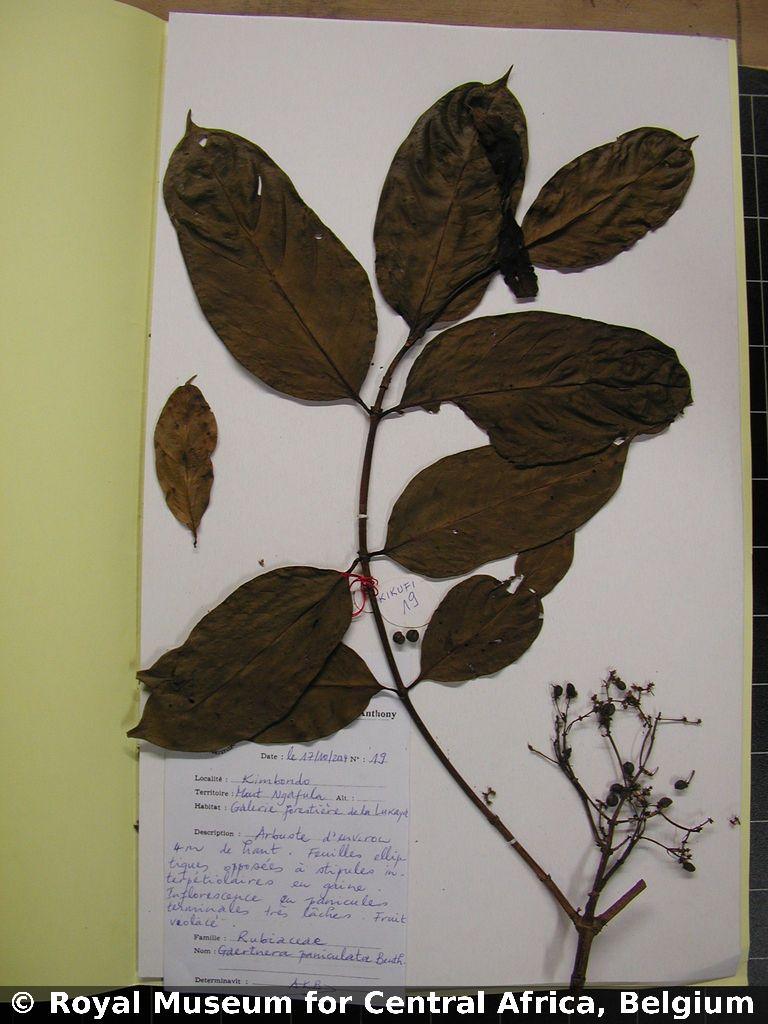 KIKUFI
19
Anthony
Date : le 17/10/2014 N° : 19
Localité : Kimbondo
Territoire : Mont Ngafula Alt. :
Habitat : Galerie forestière de la Lukaya
Description : Arbuste d'environ
4m de haut. Feuilles ellip
tiques opposées à stipules in-
terpétiolaires en gaine.
Inflorescence en panicules
terminales très lâches. Fruit
violacé.
Famille : Rubiaceae
Nom : Gaertnera paniculata Benth.
Determinavit :
© Royal Museum for Central Africa, Belgium